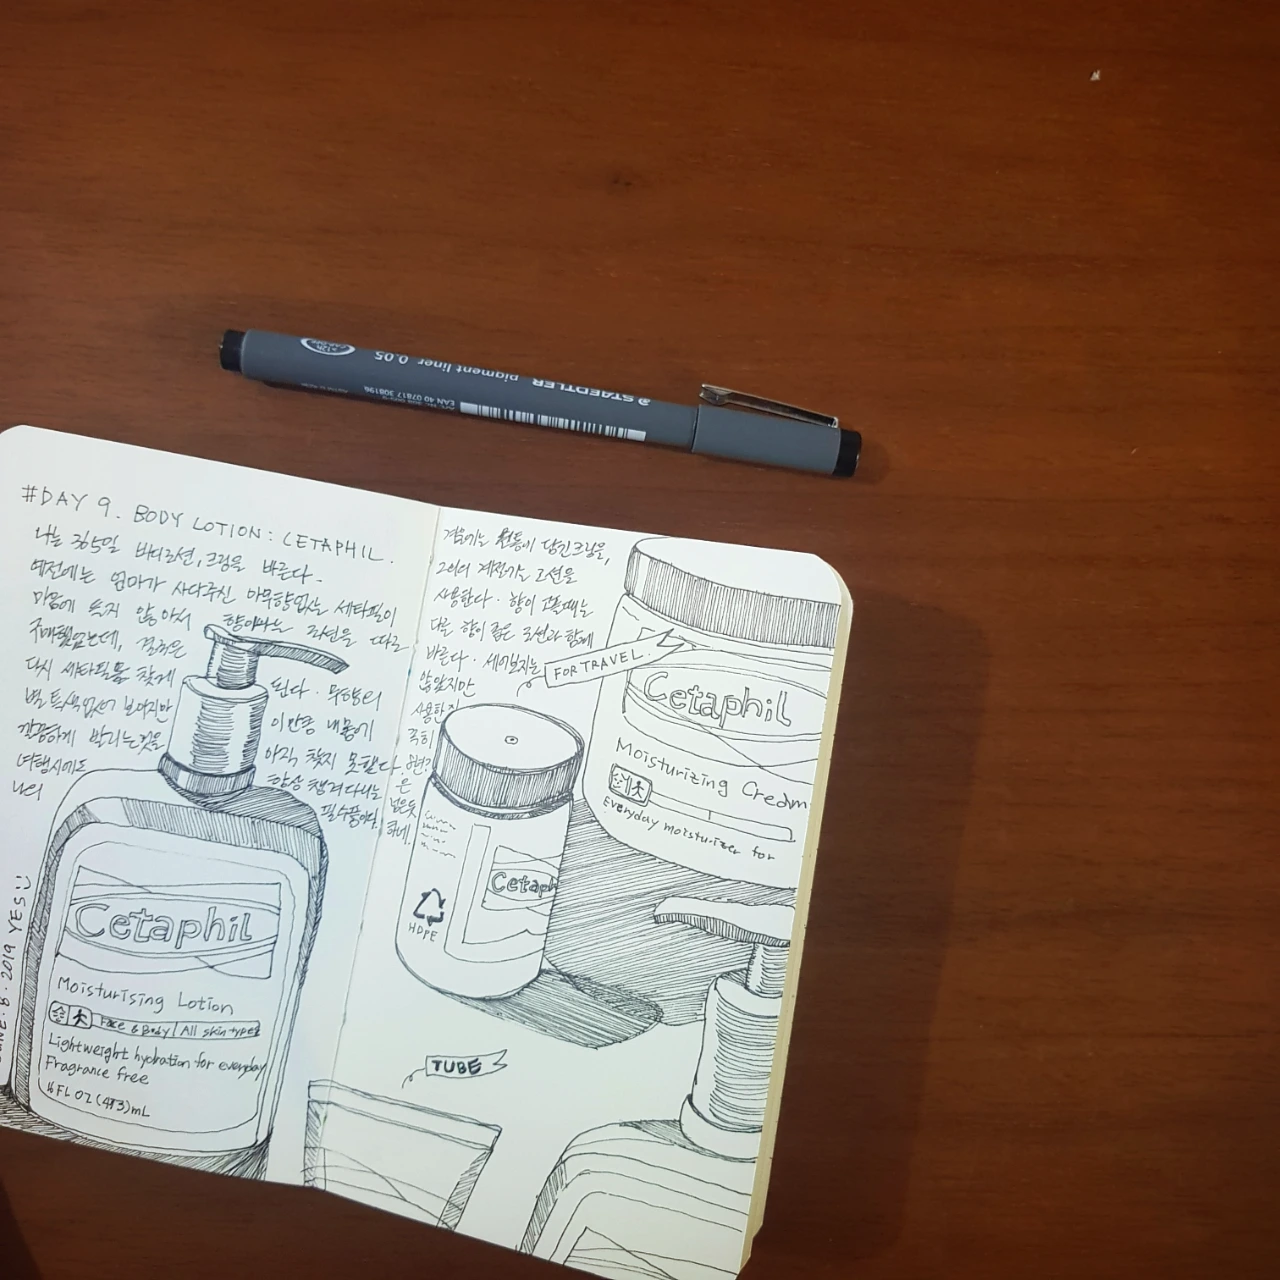 STAEDTLER pigment liner 0.05
EAN 40 07817 308196
#DAY 9. BODY LOTION: CETAPHIL.
나는 365일 바디로션,크림을 바른다.
예전에는 엄마가 사다주신 아무향없는 세타필이
마음에 들지 않아서 향이나는 로션을 따로
구매했었는데, 결국은
다시 세타필을 찾게 된다. 무향의
별 특색없어 보이지만 이만큼 내몸에
아직 찾지 못했다.
여행시에도 항상 챙겨다니는
나의 필수품이다.
JUNE.8.2019 YES:)
Cetaphil
Moisturising Lotion
Face & Body | All skin types
Lightweight hydration for everyday
Fragrance free
16 FL OZ (473)mL
겨울에는 담긴크림을,
그외의 계절에는 로션을
사용한다. 향이 고플때는
다른 향이 좋은 로션과 함께
바른다. 세어보지는
않았지만
사용한지
족히
은
넘은듯
하네.
FOR TRAVEL.
Cetaphil
Moisturizing Cream
Everyday moisturizer for
Cetaph
HDPE
TUBE